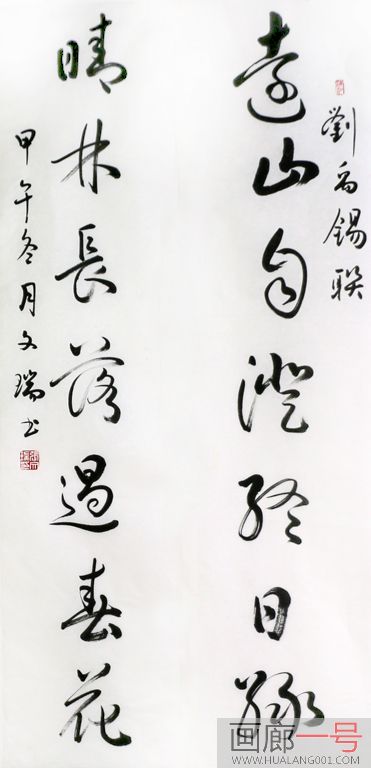 劉禹錫聯
遠山自澄終日綠
晴林長落過春花
甲午冬月文瑞书
画廊一号
WWW.HUALANG001.COM